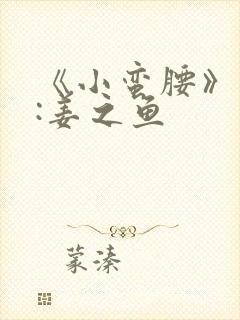 《小蛮腰》
:姜之鱼
蒙溱